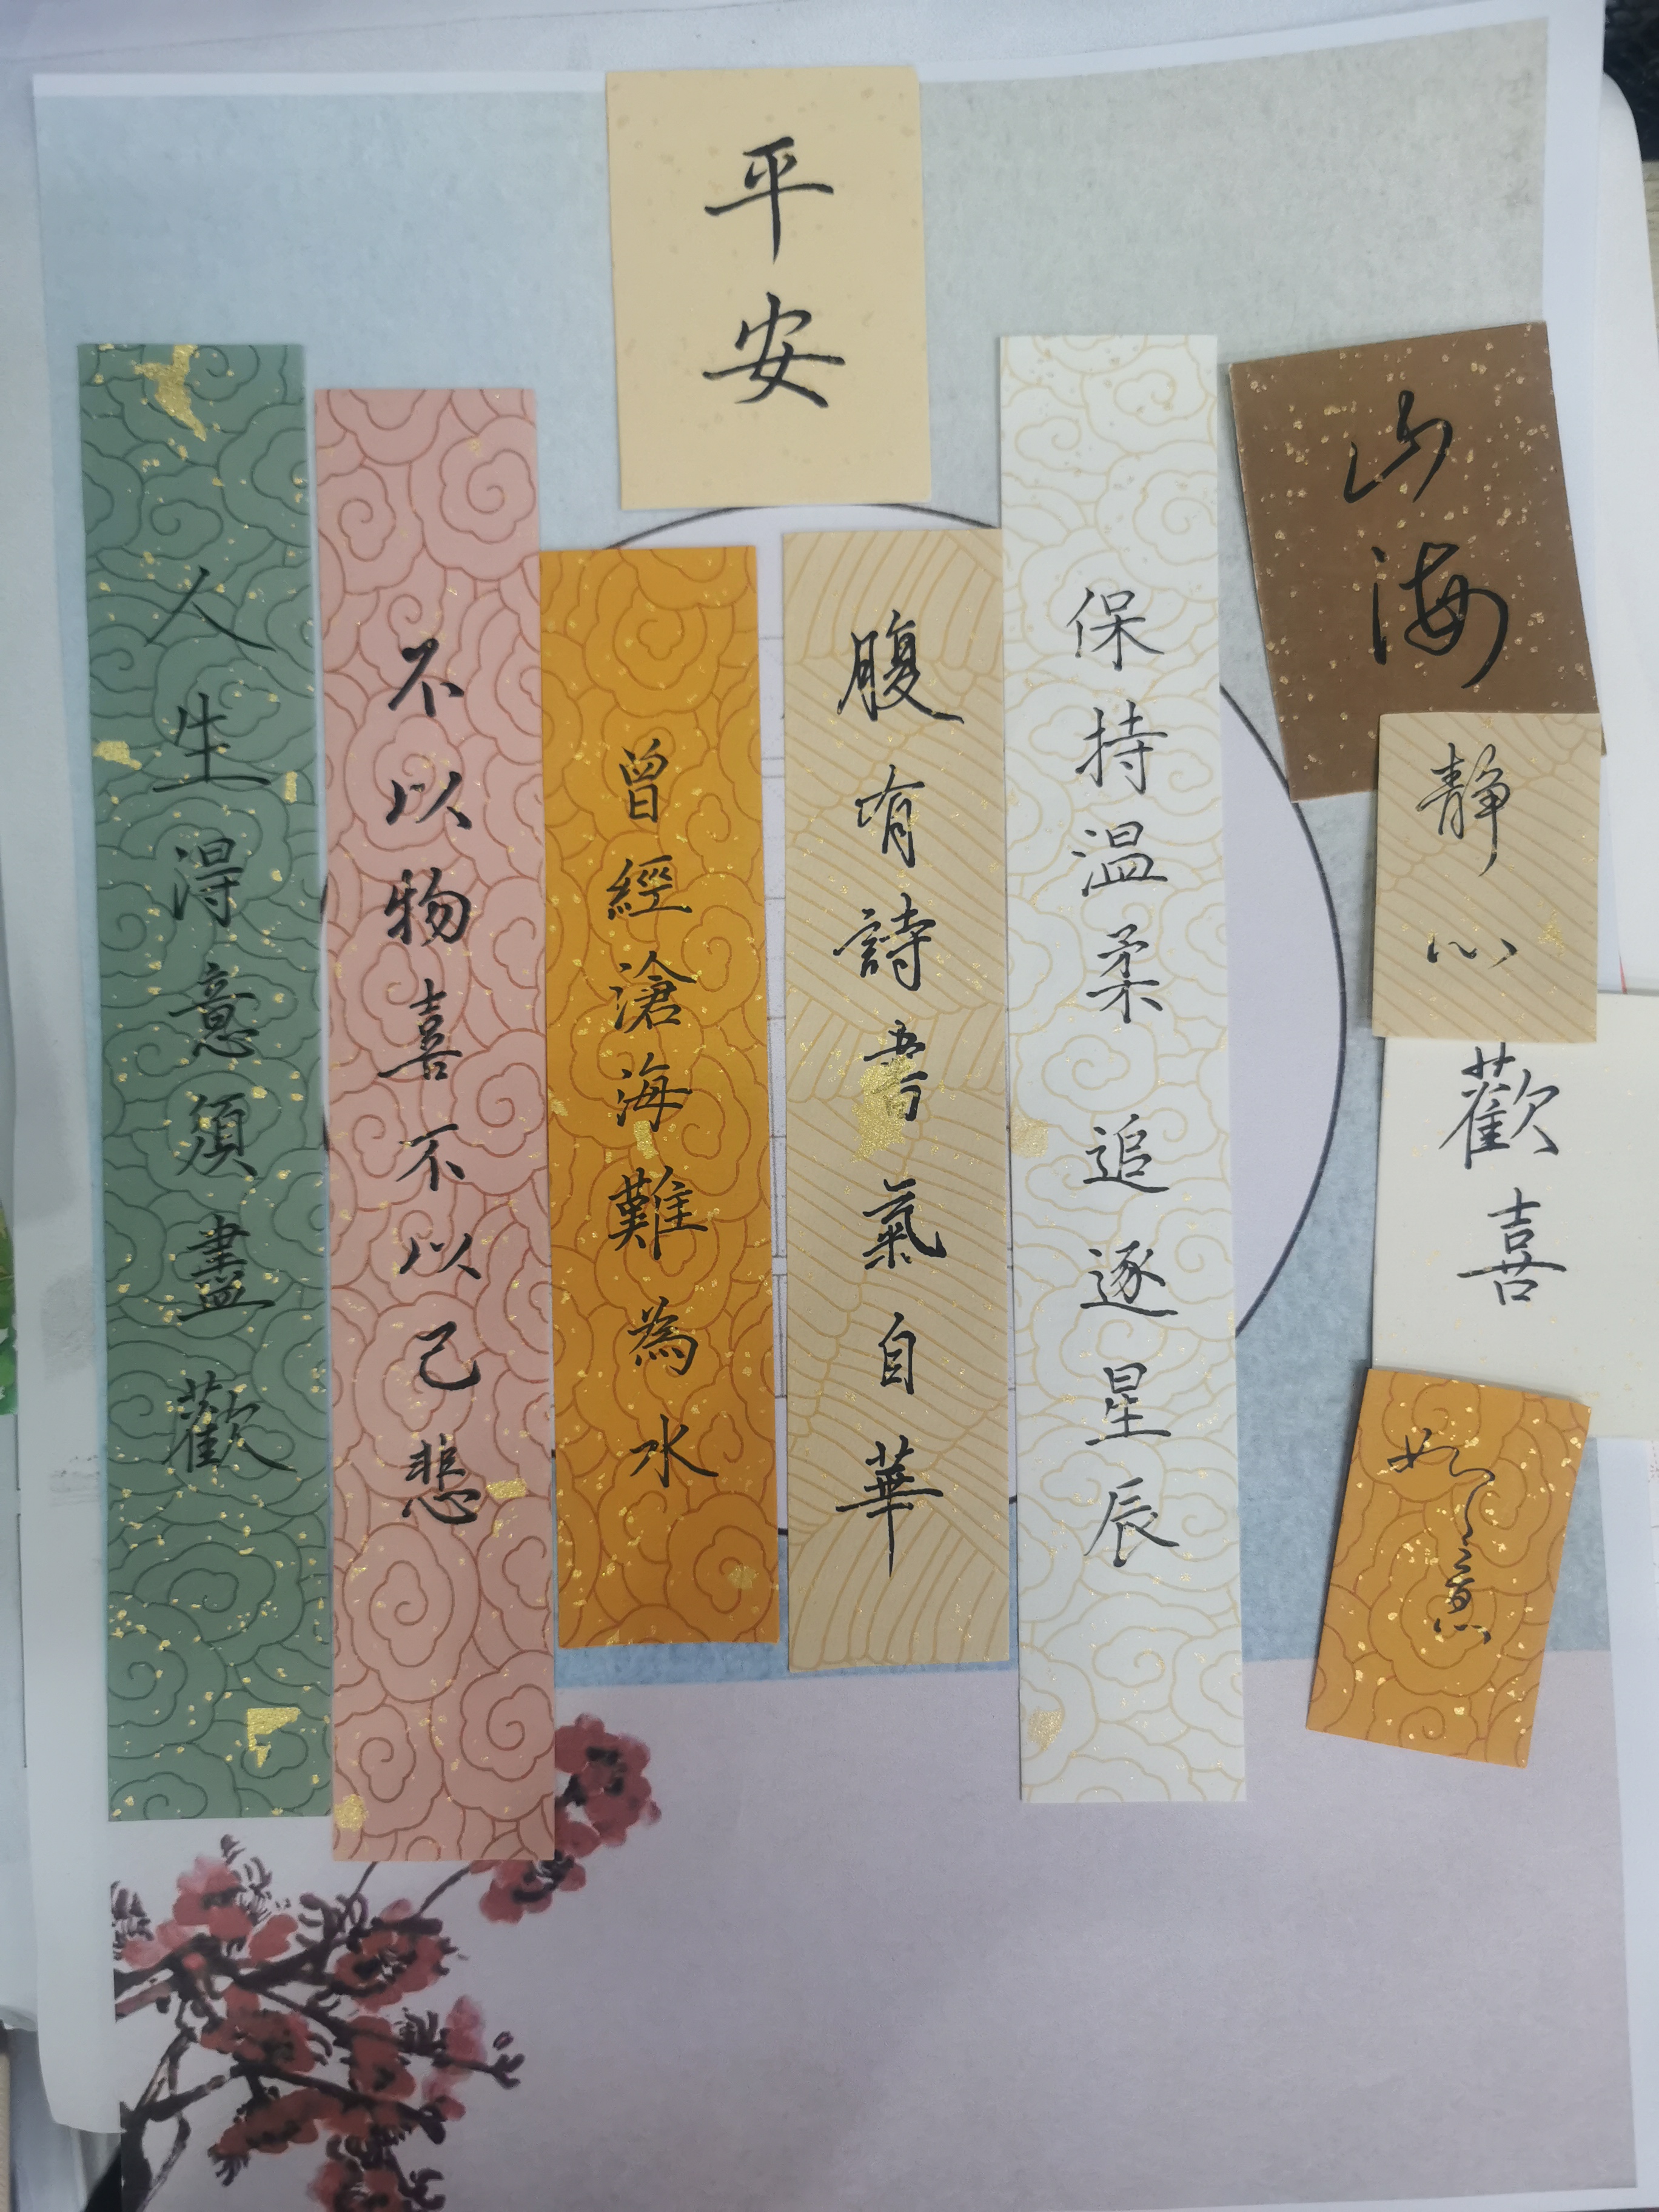 平安
人生得意須盡歡
不以物喜不以己悲
曾經滄海難為水
腹有詩書氣自華
保持温柔追逐星辰
山海
靜心
歡喜
如意